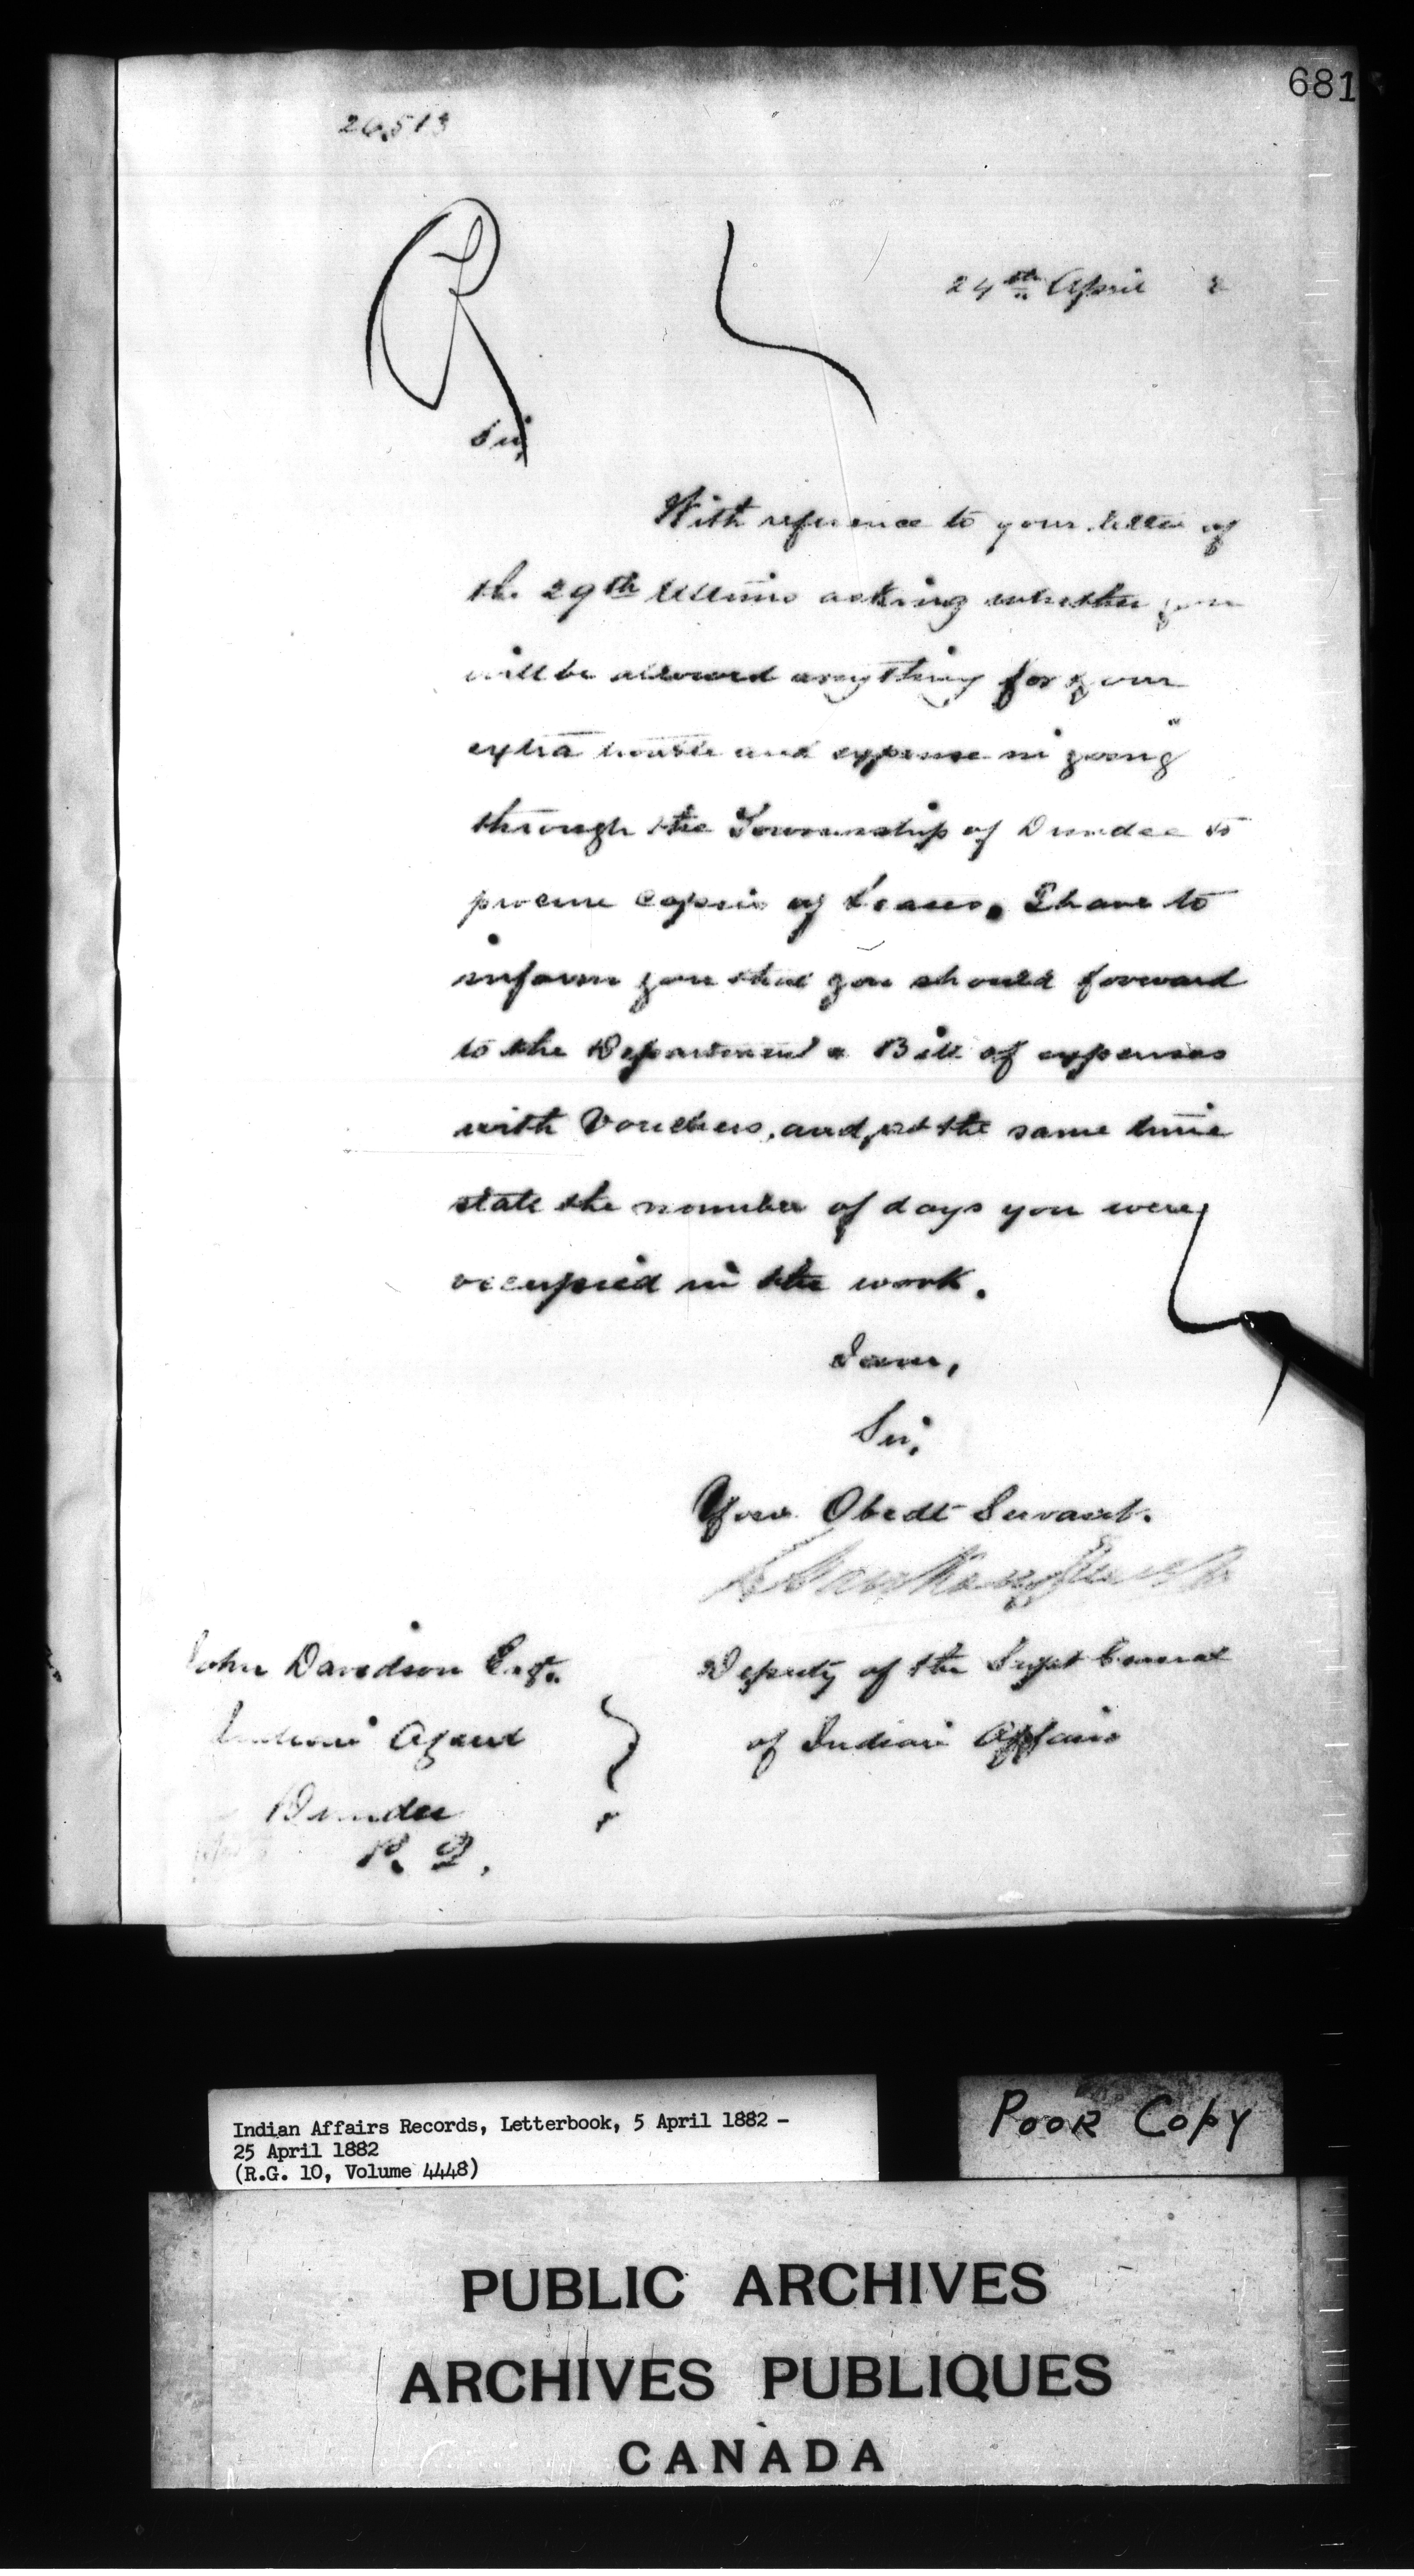 681
26513
24th April 2
Sir,
With reference to your letter of
the 29th Ultimo asking whether you
will be allowed anything for your
extra trouble and expense in going
through the Township of Dundee to
procure Copies of Leases, I have to
inform you that you should forward
to the Department a Bill of expenses
with Vouchers, and, at the same time
state the number of days you were
occupied in the work.
I am,
Sir,
Your Obedt Servant.
Deputy of the Supt General
of Indian Affairs
John Davidson Esq.
Indian Agent
Dundee
P. Q.
Indian Affairs Records, Letterbook, 5 April 1882 -
25 April 1882
(R.G. 10, Volume 4448)
POOR COPY
PUBLIC ARCHIVES
ARCHIVES PUBLIQUES
CANADA